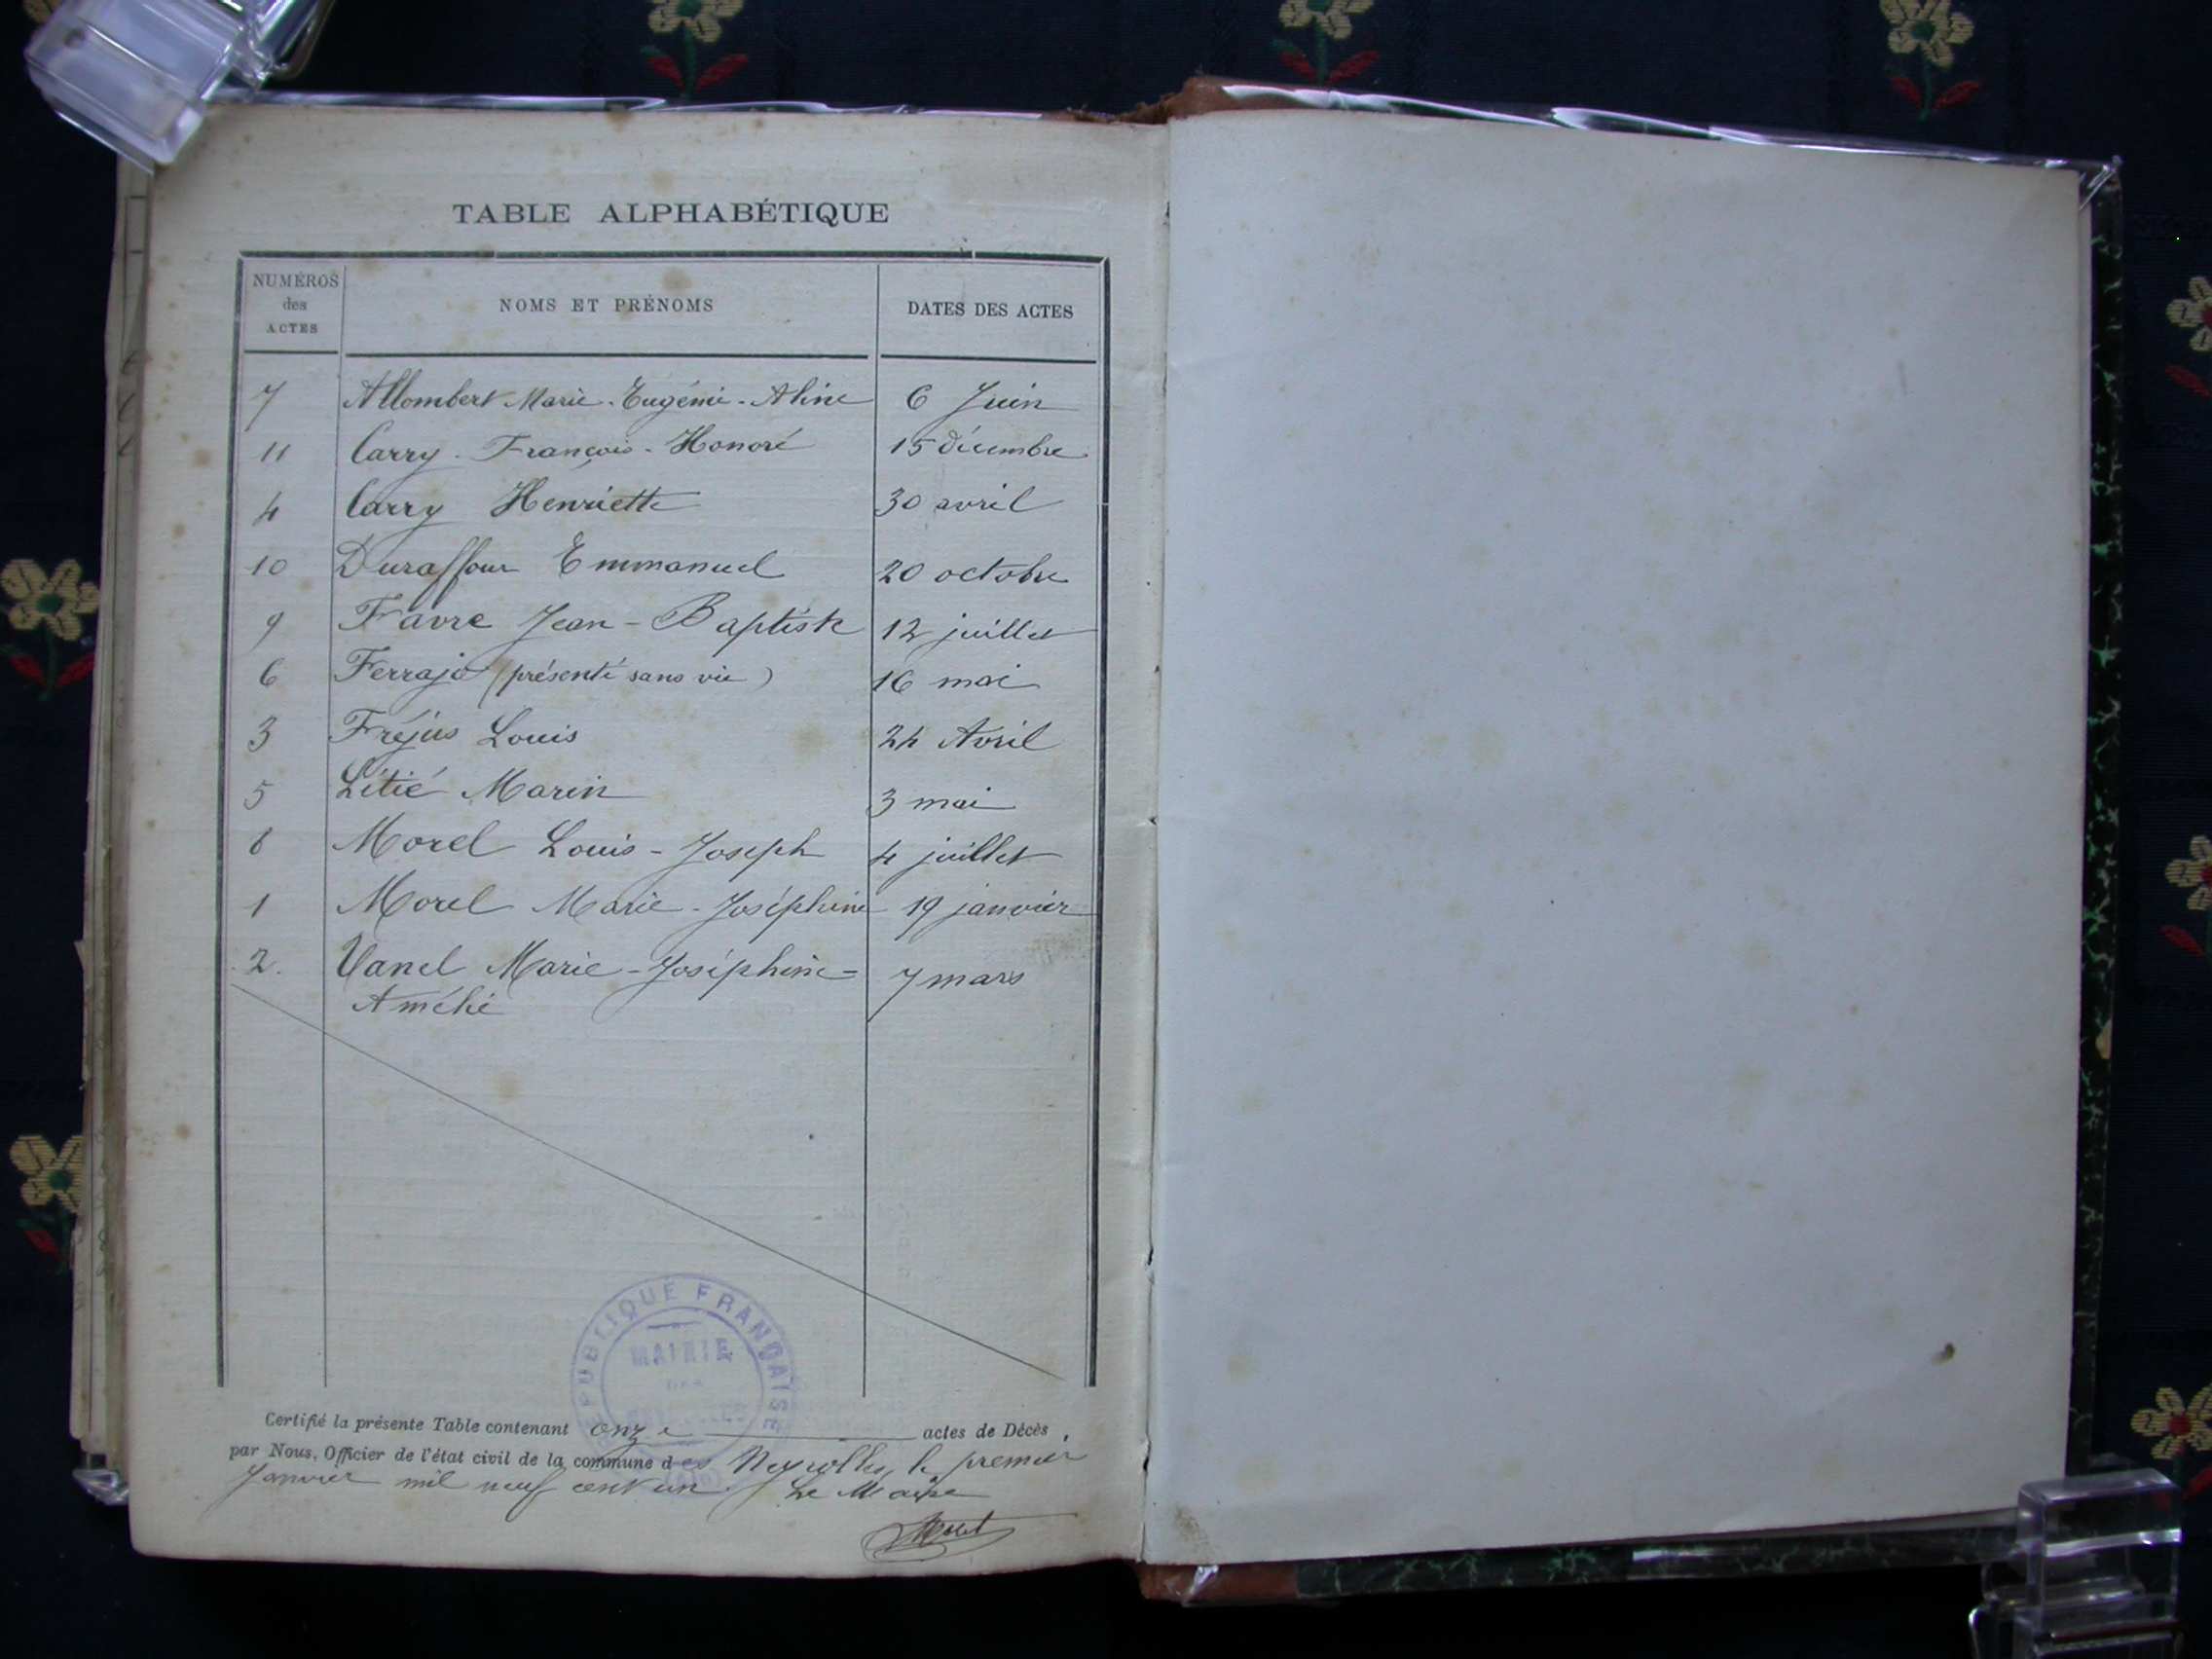 TABLE ALPHABÉTIQUE
NUMÉROS
des
ACTES
NOMS ET PRÉNOMS
DATES DES ACTES
7 Allombert Marie-Eugénie-Aline 6 Juin
11 Carry François-Honoré 15 décembre
4 Carry Henriette 30 avril
10 Duraffour Emmanuel 20 octobre
9 Favre Jean-Baptiste 12 juillet
6 Ferrajo (présenté sans vie) 16 mai
3 Fréjus Louis 24 Avril
5 Létié Marin 3 mai
8 Morel Louis-Joseph 4 juillet
1 Morel Marie-Joséphine 19 janvier
2. Vanel Marie-Joséphine- 7 mars
Amélie
RÉPUBLIQUE FRANÇAISE
MAIRIE
DES
Certifié la présente Table contenant onze actes de Décès,
par Nous, Officier de l'état civil de la commune des Neyrolles, le premier
Janvier mil neuf cent un. Le Maire